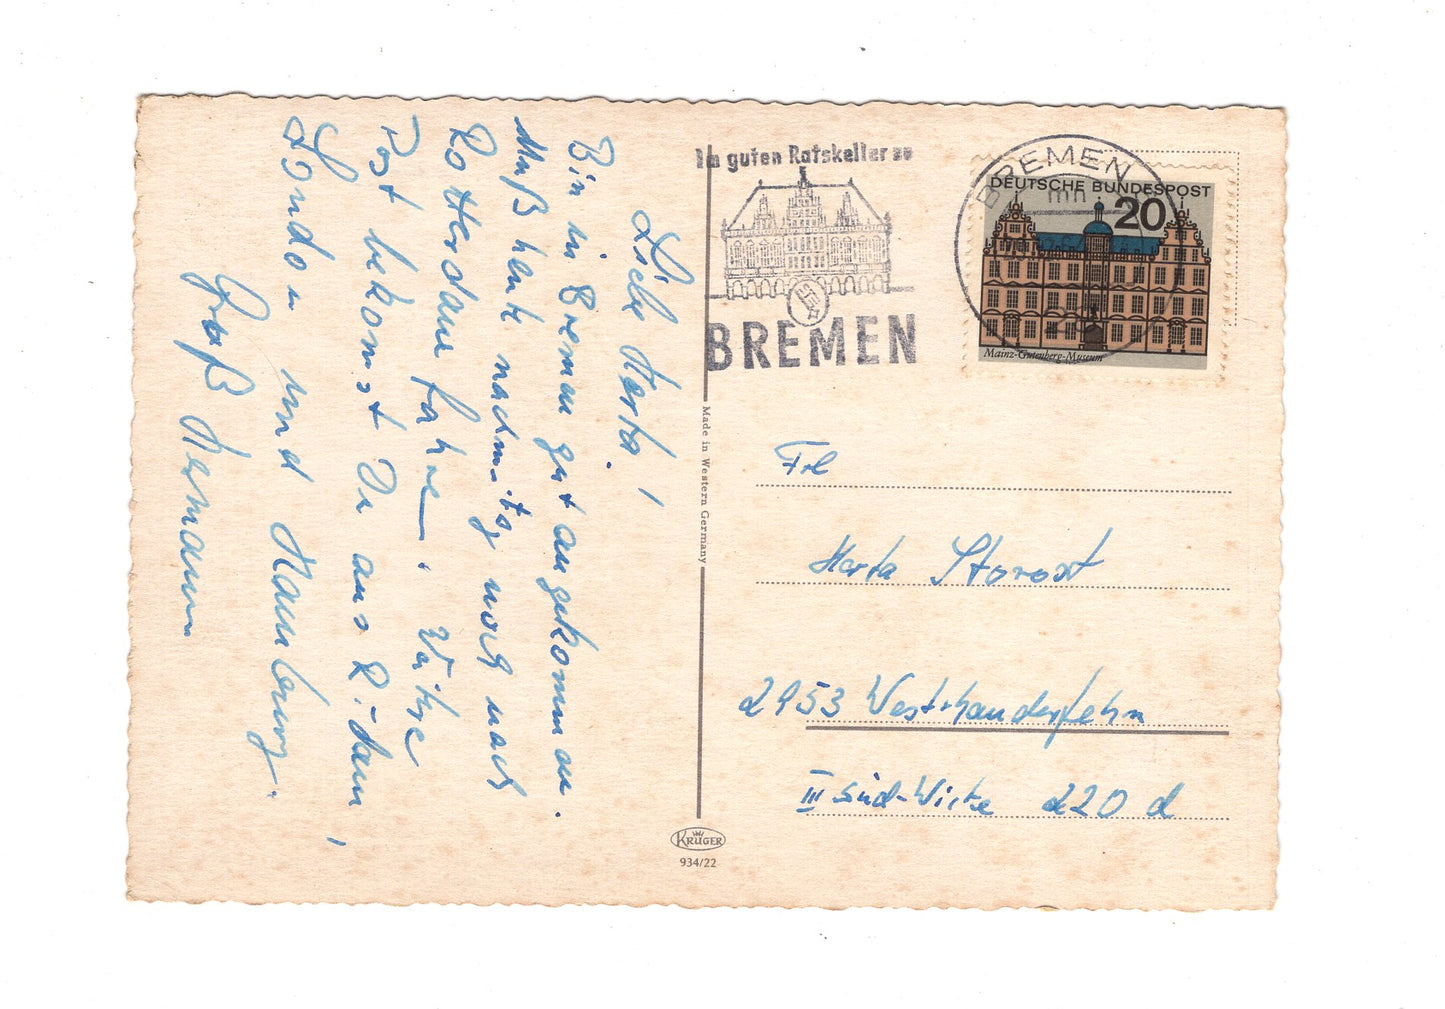 Liebe Herta!
Bin in Bremen gut angekommen.
Muß heute nachmittag noch nach
Rotterdam fahren. Weitere
Post bekomst Du aus R-dam,
London und Hamburg.
Gruß Hermann
Im guten Ratskeller zu
BREMEN
BREMEN
mn
DEUTSCHE BUNDESPOST
20
Mainz-Gutenberg-Museum
Made in Western Germany
Frl
Herta Storost
2953 Westrhauderfehn
III Süd-Wieke 220 d
KRÜGER
934/22